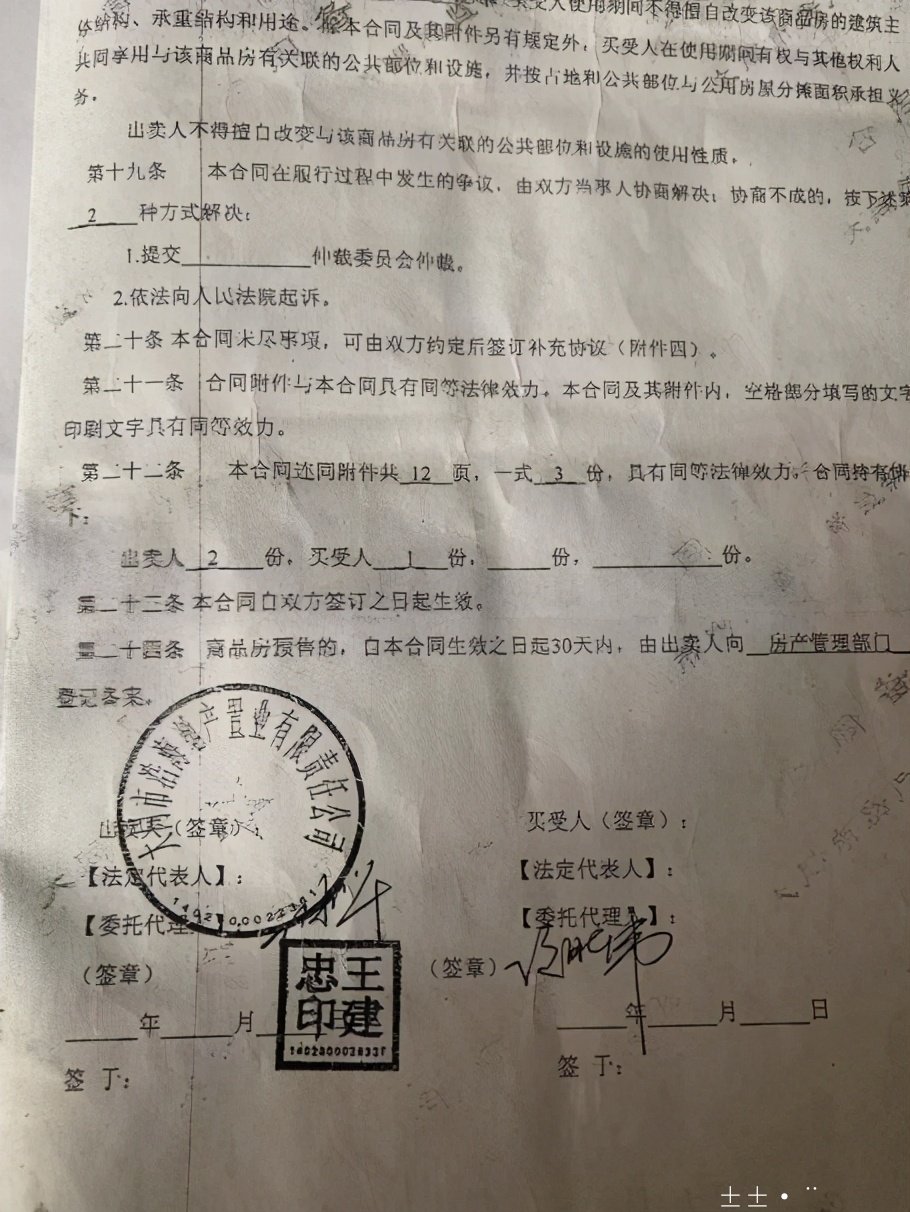 买受人使用期间不得擅自改变该商品房的建筑主
体结构、承重结构和用途。除本合同及其附件另有规定外，买受人在使用期间有权与其他权利人
共同享用与该商品房有关联的公共部位和设施，并按占地和公共部位与公用房屋分摊面积承担义
务。
出卖人不得擅自改变与该商品房有关联的公共部位和设施的使用性质。
第十九条 本合同在履行过程中发生的争议，由双方当事人协商解决；协商不成的，按下述第
2 种方式解决：
1.提交 仲裁委员会仲裁。
2.依法向人民法院起诉。
第二十条 本合同未尽事项，可由双方约定后签订补充协议（附件四）。
第二十一条 合同附件与本合同具有同等法律效力。本合同及其附件内，空格部分填写的文字
印刷文字具有同等效力。
第二十二条 本合同连同附件共 12 页，一式 3 份，具有同等法律效力，合同持有情
下：
出卖人 2 份，买受人 1 份， 份， 份。
第二十三条 本合同自双方签订之日起生效。
第二十四条 商品房预售的，自本合同生效之日起30天内，由出卖人向 房产管理部门
登记备案。
产置业有限责任公司
出卖人（签章）： 买受人（签章）：
【法定代表人】： 【法定代表人】：
【委托代理 【委托代理人】：
（签章） （签章）
王建忠印
年 月 年 月 日
签 于： 签 于：